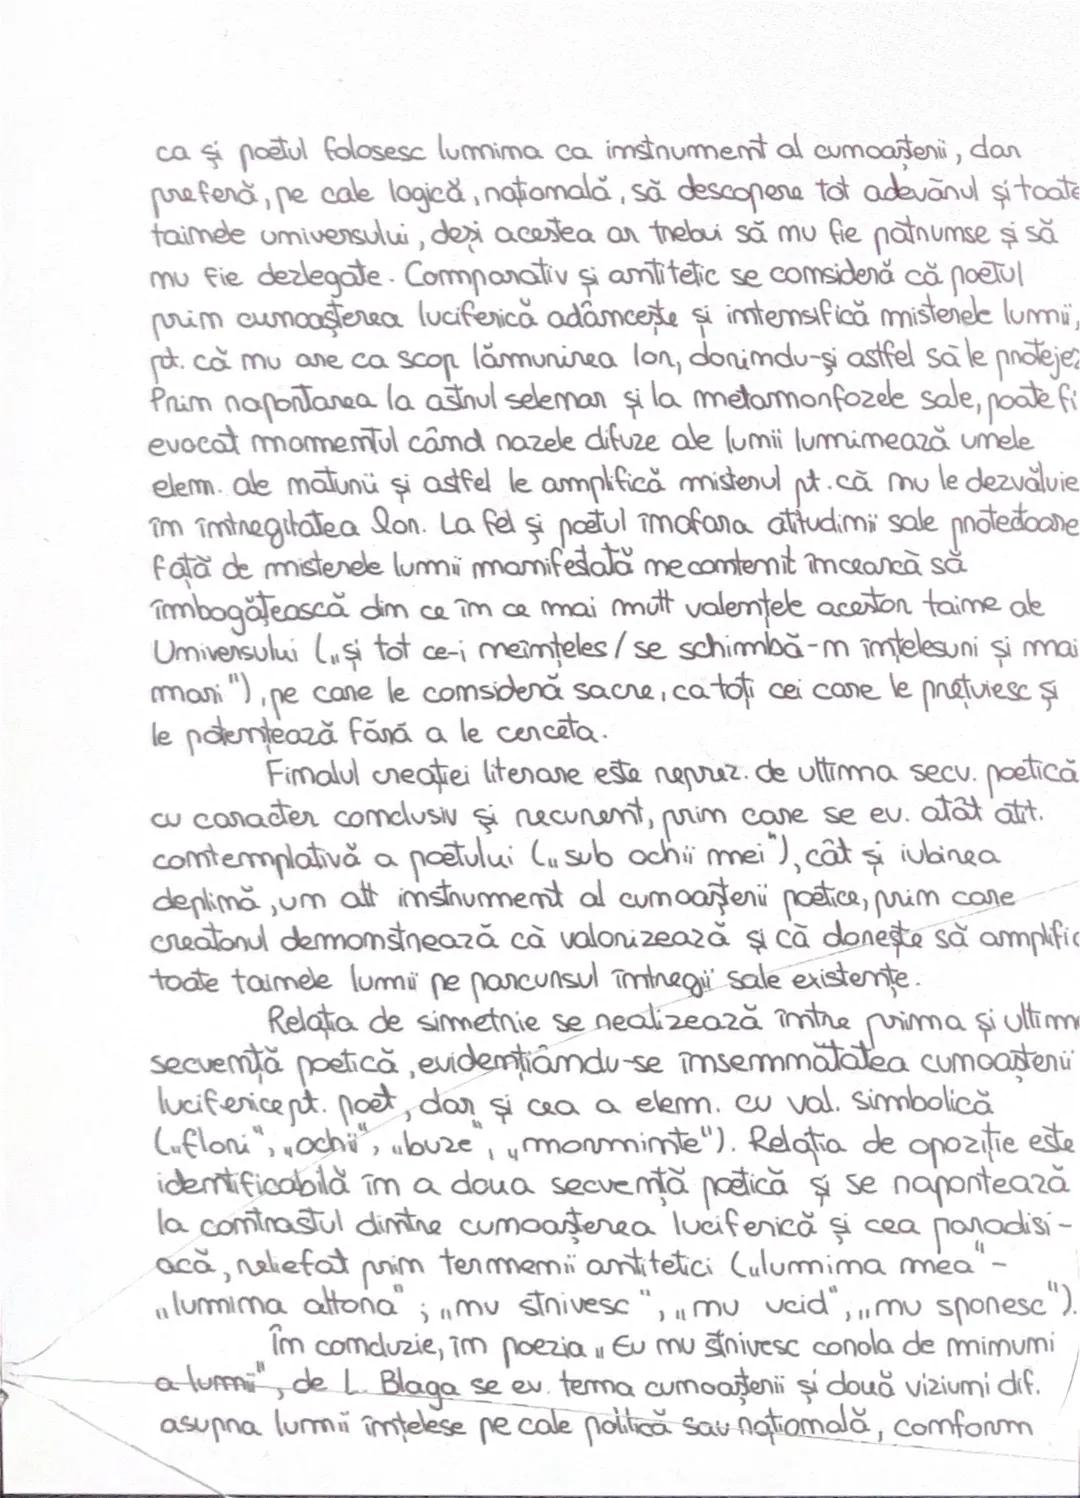 ca și poetul folosesc lumina ca instrument al cunoașterii, dar
preferă, pe cale logică, rațională, să descopere tot adevărul și toate
tainele universului, deși acestea ar trebui să nu fie pătrunse și să
nu fie dezlegate. Comparativ și antitetic se consideră că poetul
prin cunoașterea luciferică adâncește și intensifică misterele lumii,
pt. că nu are ca scop lămurirea lor, dorindu-și astfel să le protejez
Prin raportarea la astrul selenar și la metamorfozele sale, poate fi
evocat momentul când razele difuze ale lumii luminează unele
elem. ale naturii și astfel le amplifică misterul pt. că nu le dezvăluie
în întregitatea lor. La fel și poetul în afara atitudinii sale protectoare
față de misterele lumii manifestată necontenit încearcă să
îmbogățească din ce în ce mai mult valențele acestor taine ale
Universului („și tot ce-i neînțeles / se schimbă-n înțelesuri și mai
mari"), pe care le consideră sacre, ca toți cei care le prețuiesc și
le potențează fără a le cerceta.
Finalul creației literare este reprez. de ultima secv. poetică
cu caracter conclusiv și recurent, prin care se ev. atât atit.
contemplativă a poetului („sub ochii mei"), cât și iubirea
deplină, un alt instrument al cunoașterii poetice, prin care
creatorul demonstrează că valorizează și că dorește să amplific
toate tainele lumii pe parcursul întregii sale existențe.
Relația de simetrie se realizează între prima și ultima
secvență poetică, evidențiându-se însemnătatea cunoașterii
luciferice pt. poet, dar și cea a elem. cu val. simbolică
(„flori", „ochi", „buze", „morminte"). Relația de opoziție este
identificabilă în a doua secvență poetică și se raportează
la contrastul dintre cunoașterea luciferică și cea paradisi-
acă, reliefat prin termenii antitetici („lumina mea" -
„lumina altora"; „nu strivesc", „nu ucid", „nu sporesc").
În concluzie, în poezia „Eu nu strivesc corola de minuni
a lumii", de L. Blaga se ev. tema cunoașterii și două viziuni dif.
asupra lumii înțelese pe cale politică sau rațională, conform